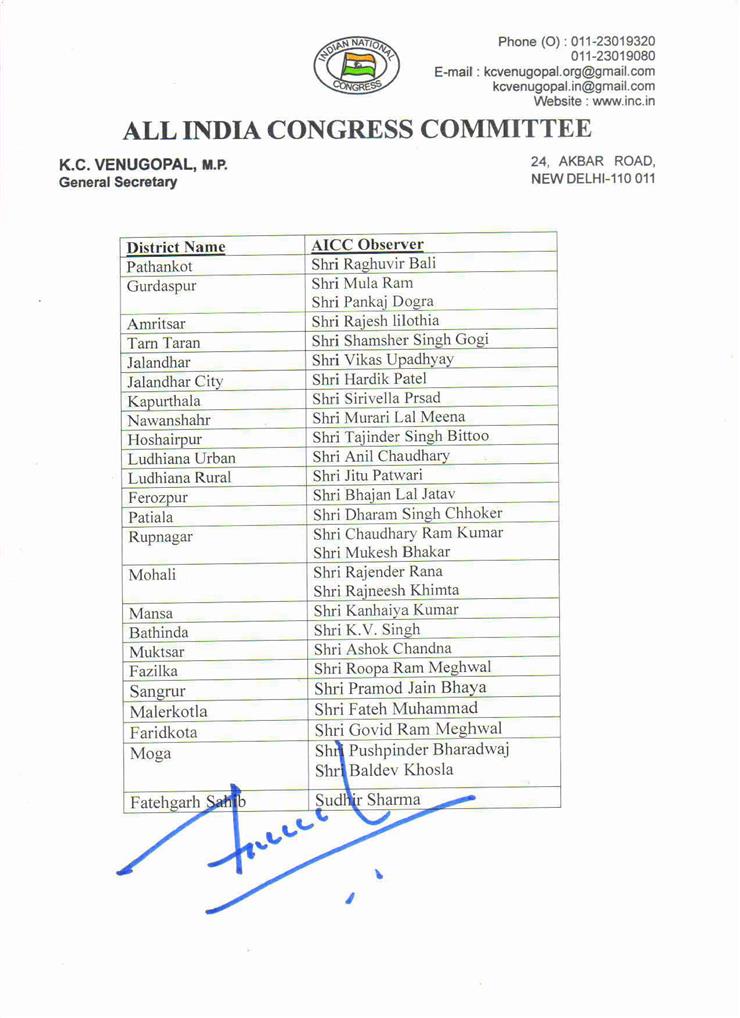 INDIAN NATIONAL
CONGRESS
Phone (O) : 011-23019320
011-23019080
E-mail : kcvenugopal.org@gmail.com
kcvenugopal.in@gmail.com
Website : www.inc.in
ALL INDIA CONGRESS COMMITTEE
K.C. VENUGOPAL, M.P.
General Secretary
24, AKBAR ROAD,
NEW DELHI-110 011
District Name AICC Observer
Pathankot Shri Raghuvir Bali
Gurdaspur Shri Mula Ram
Shri Pankaj Dogra
Amritsar Shri Rajesh lilothia
Tarn Taran Shri Shamsher Singh Gogi
Jalandhar Shri Vikas Upadhyay
Jalandhar City Shri Hardik Patel
Kapurthala Shri Sirivella Prsad
Nawanshahr Shri Murari Lal Meena
Hoshairpur Shri Tajinder Singh Bittoo
Ludhiana Urban Shri Anil Chaudhary
Ludhiana Rural Shri Jitu Patwari
Ferozpur Shri Bhajan Lal Jatav
Patiala Shri Dharam Singh Chhoker
Rupnagar Shri Chaudhary Ram Kumar
Shri Mukesh Bhakar
Mohali Shri Rajender Rana
Shri Rajneesh Khimta
Mansa Shri Kanhaiya Kumar
Bathinda Shri K.V. Singh
Muktsar Shri Ashok Chandna
Fazilka Shri Roopa Ram Meghwal
Sangrur Shri Pramod Jain Bhaya
Malerkotla Shri Fateh Muhammad
Faridkota Shri Govid Ram Meghwal
Moga Shri Pushpinder Bharadwaj
Shri Baldev Khosla
Fatehgarh Sahib Sudhir Sharma